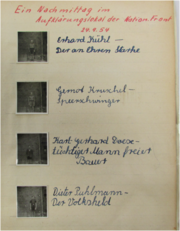 Ein Nachmittag im
Aufklärungslokal der Nation. Front
20.9.54
Erhard Kühl –
Der an Ehren Starke
Gernot Kruschel –
Speerschwinger
Karl Gerhard Doese –
Lustiger Mann freier
Bauer
Dieter Ruhlmann –
Der Volksheld